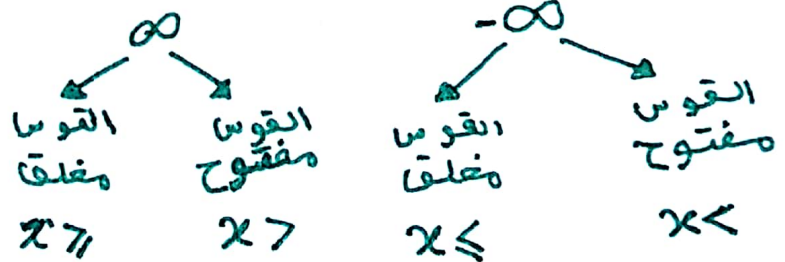 ∞
-∞
القوس
مغلق
x ≥
القوس
مفتوح
x >
القوس
مغلق
x ≤
القوس
مفتوح
x <